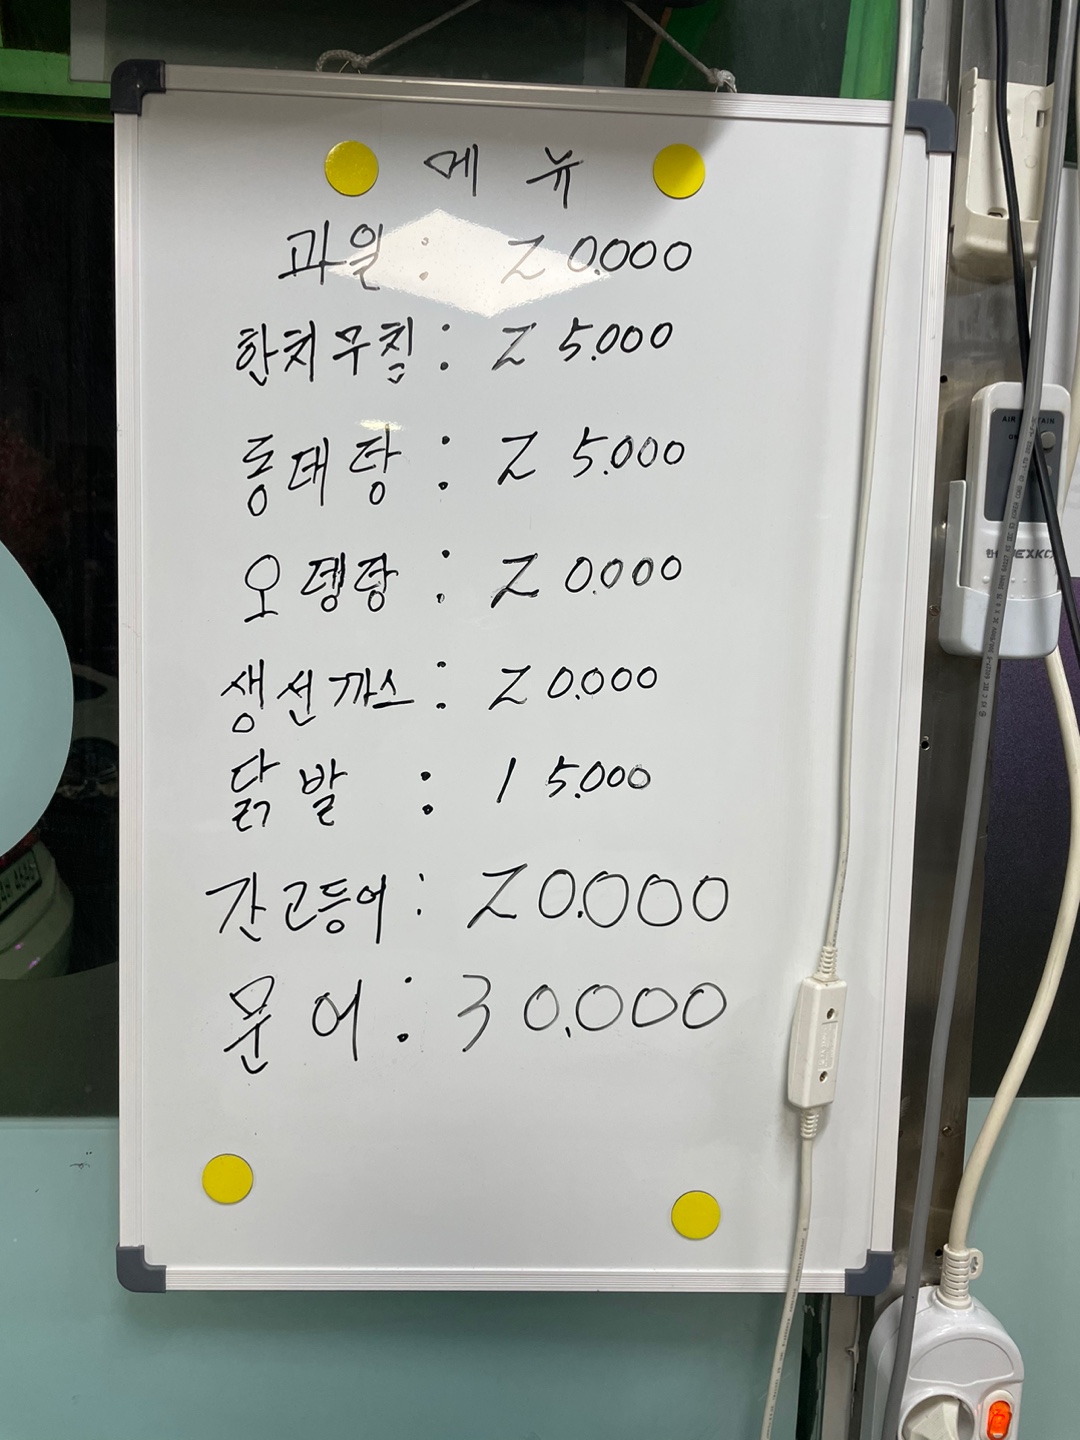 메뉴
과일 : 20.000
한치무침 : 25.000
동태탕 : 25.000
오뎅탕 : 20.000
생선까스 : 20.000
닭발 : 15.000
간고등어 : 20.000
문어 : 30.000